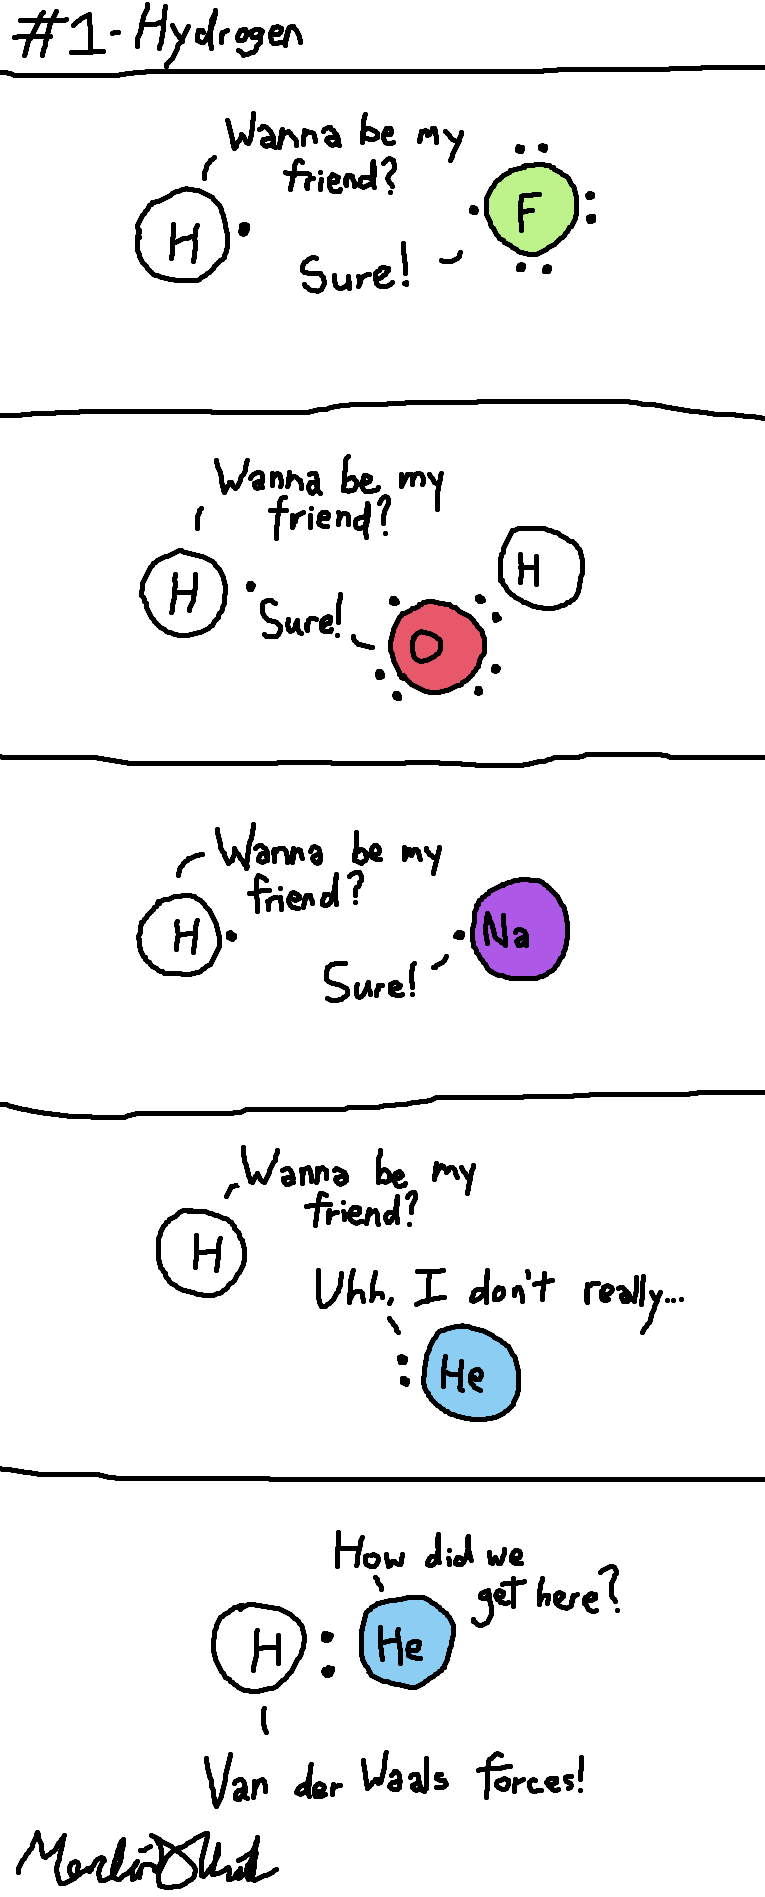 #1- Hydrogen
Wanna be my
friend?
H
F
Sure!
Wanna be my
friend?
H
H
Sure!
O
Wanna be my
friend?
H
Na
Sure!
Wanna be my
friend?
H
Uhh, I don't really...
He
How did we
get here?
H
He
Van der Waals forces!